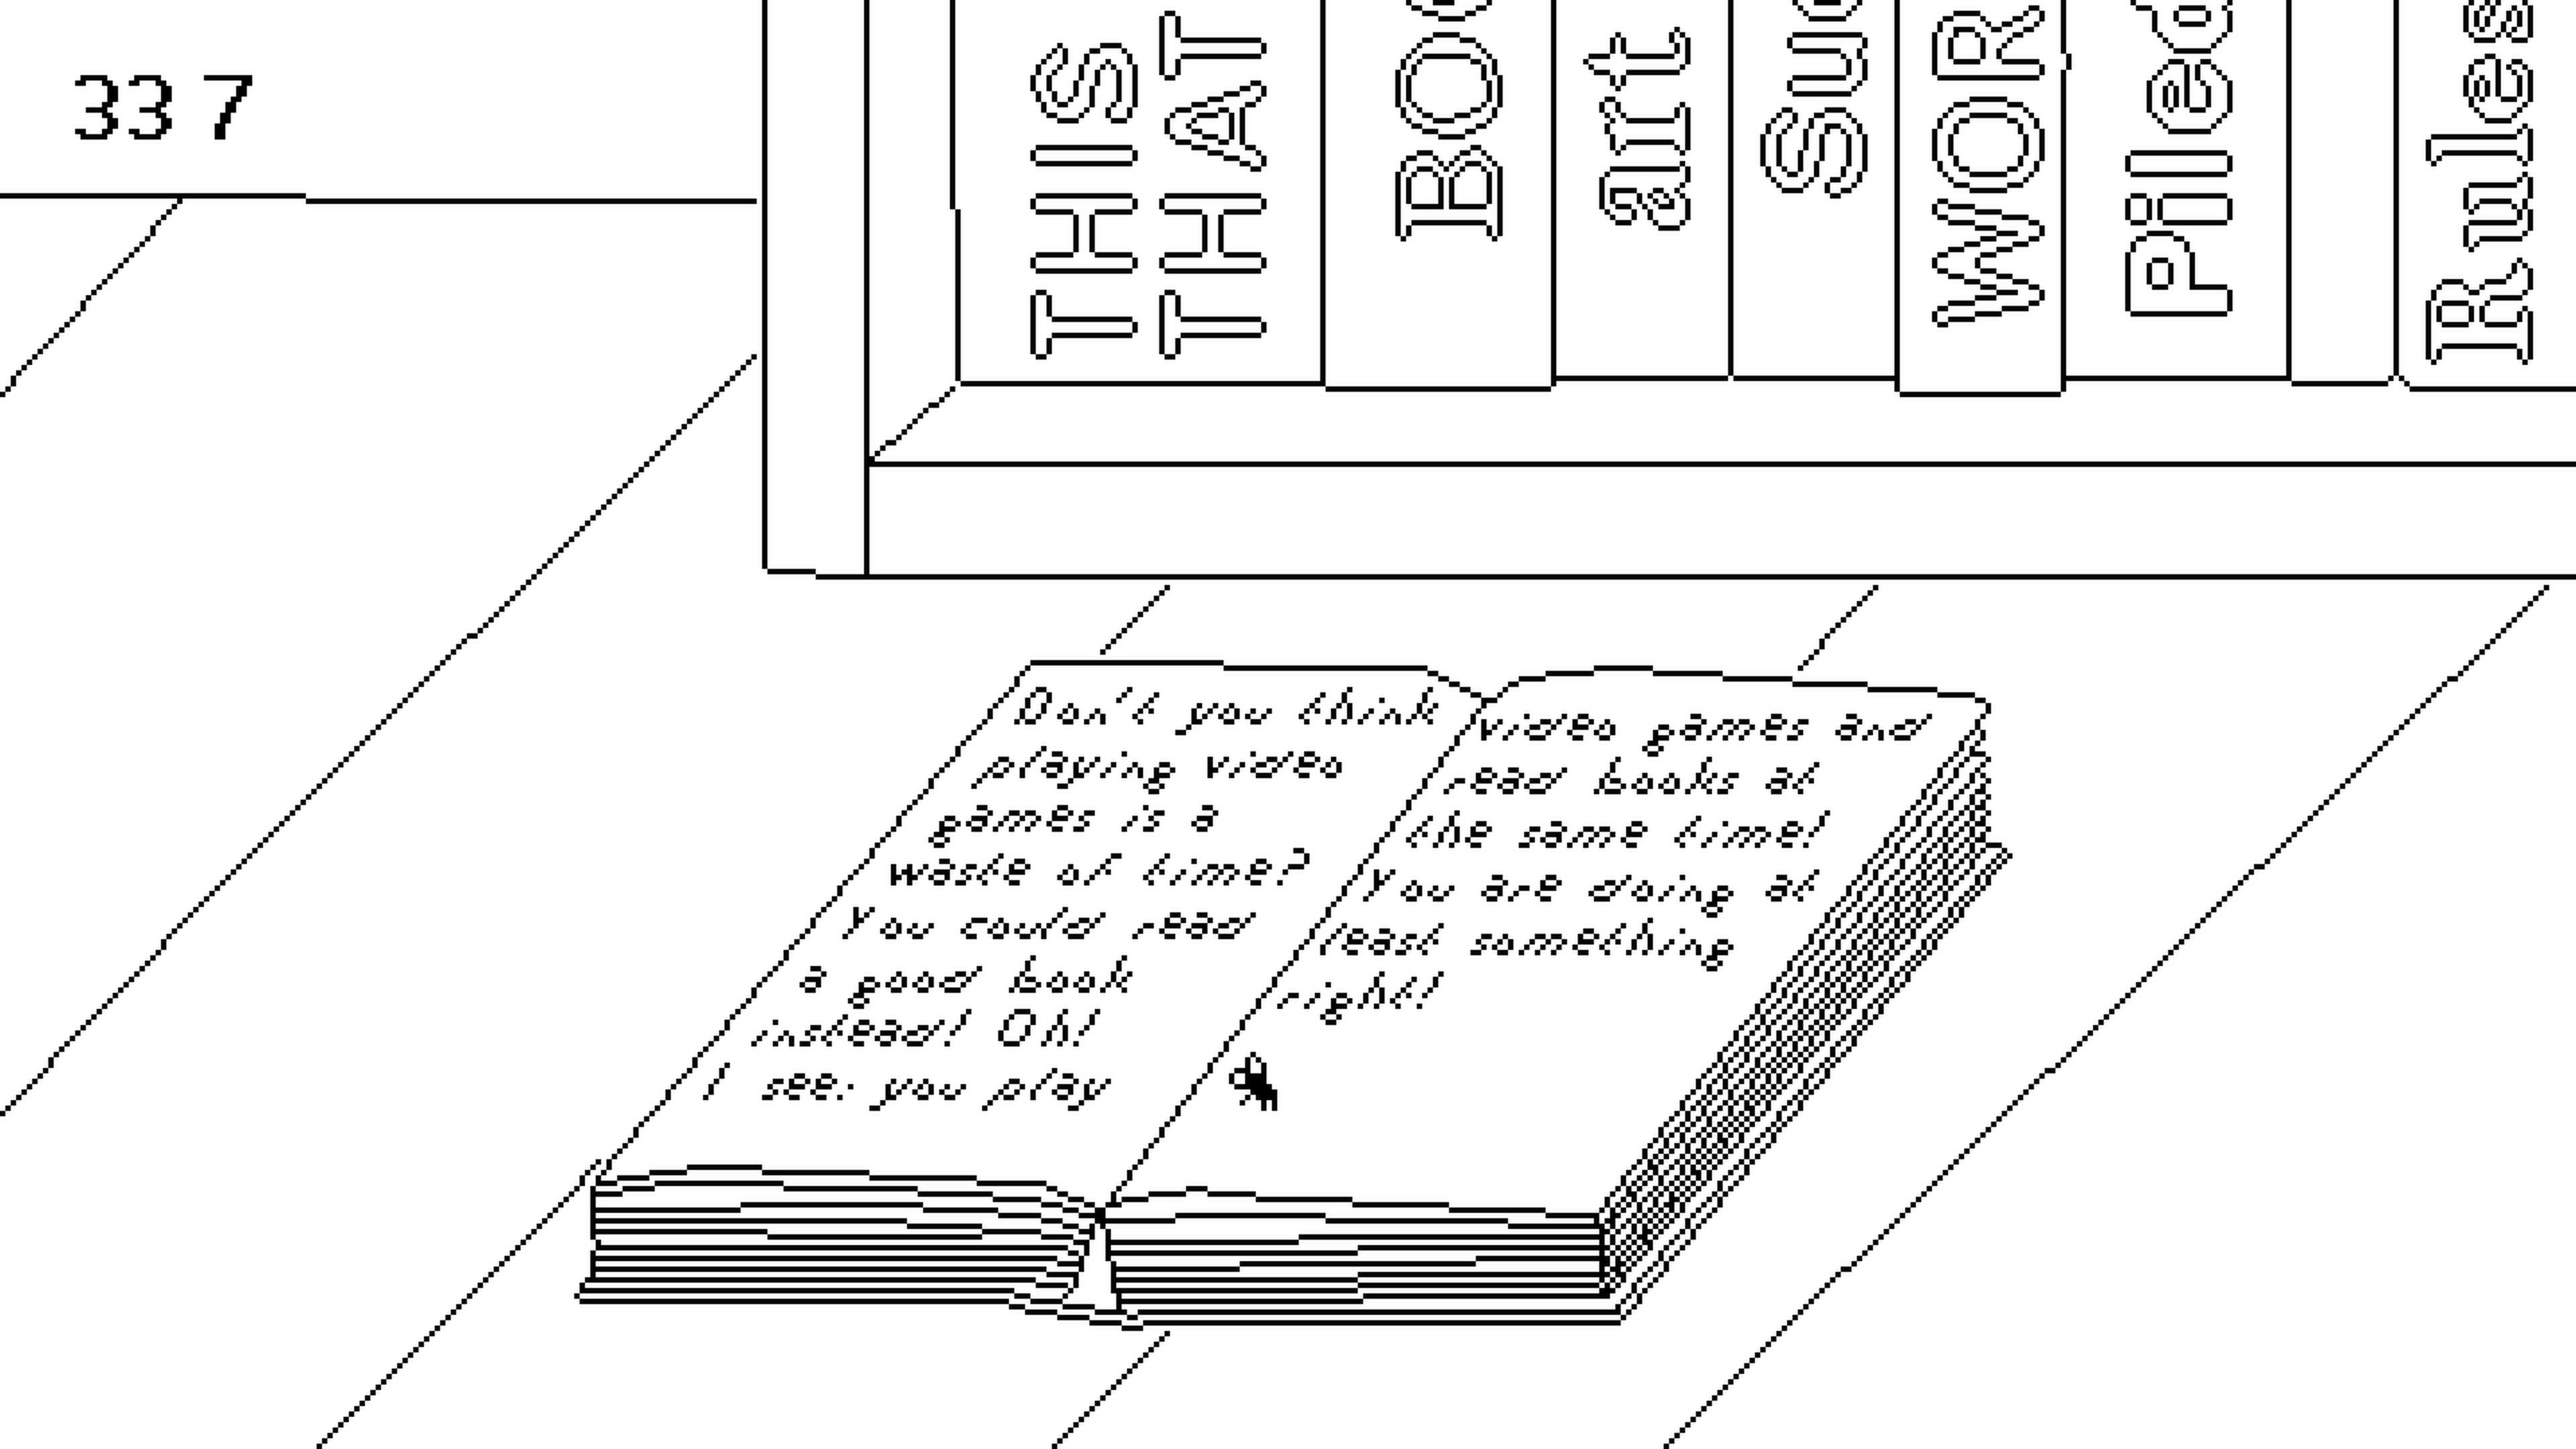 33 7
THIS
THAT
art
WOR
Piled
Rules
Don't you think
playing video
games is a
waste of time?
You could read
a good book
instead! Oh!
I see: you play
video games and
read books at
the same time!
You are doing at
least something
right!